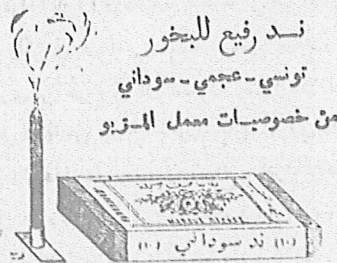 نــد رفيع للبخور
تونسي - عجمي - سوداني
من خصوصيات معمل المزيو
(١٠) ند سوداني (١٠)